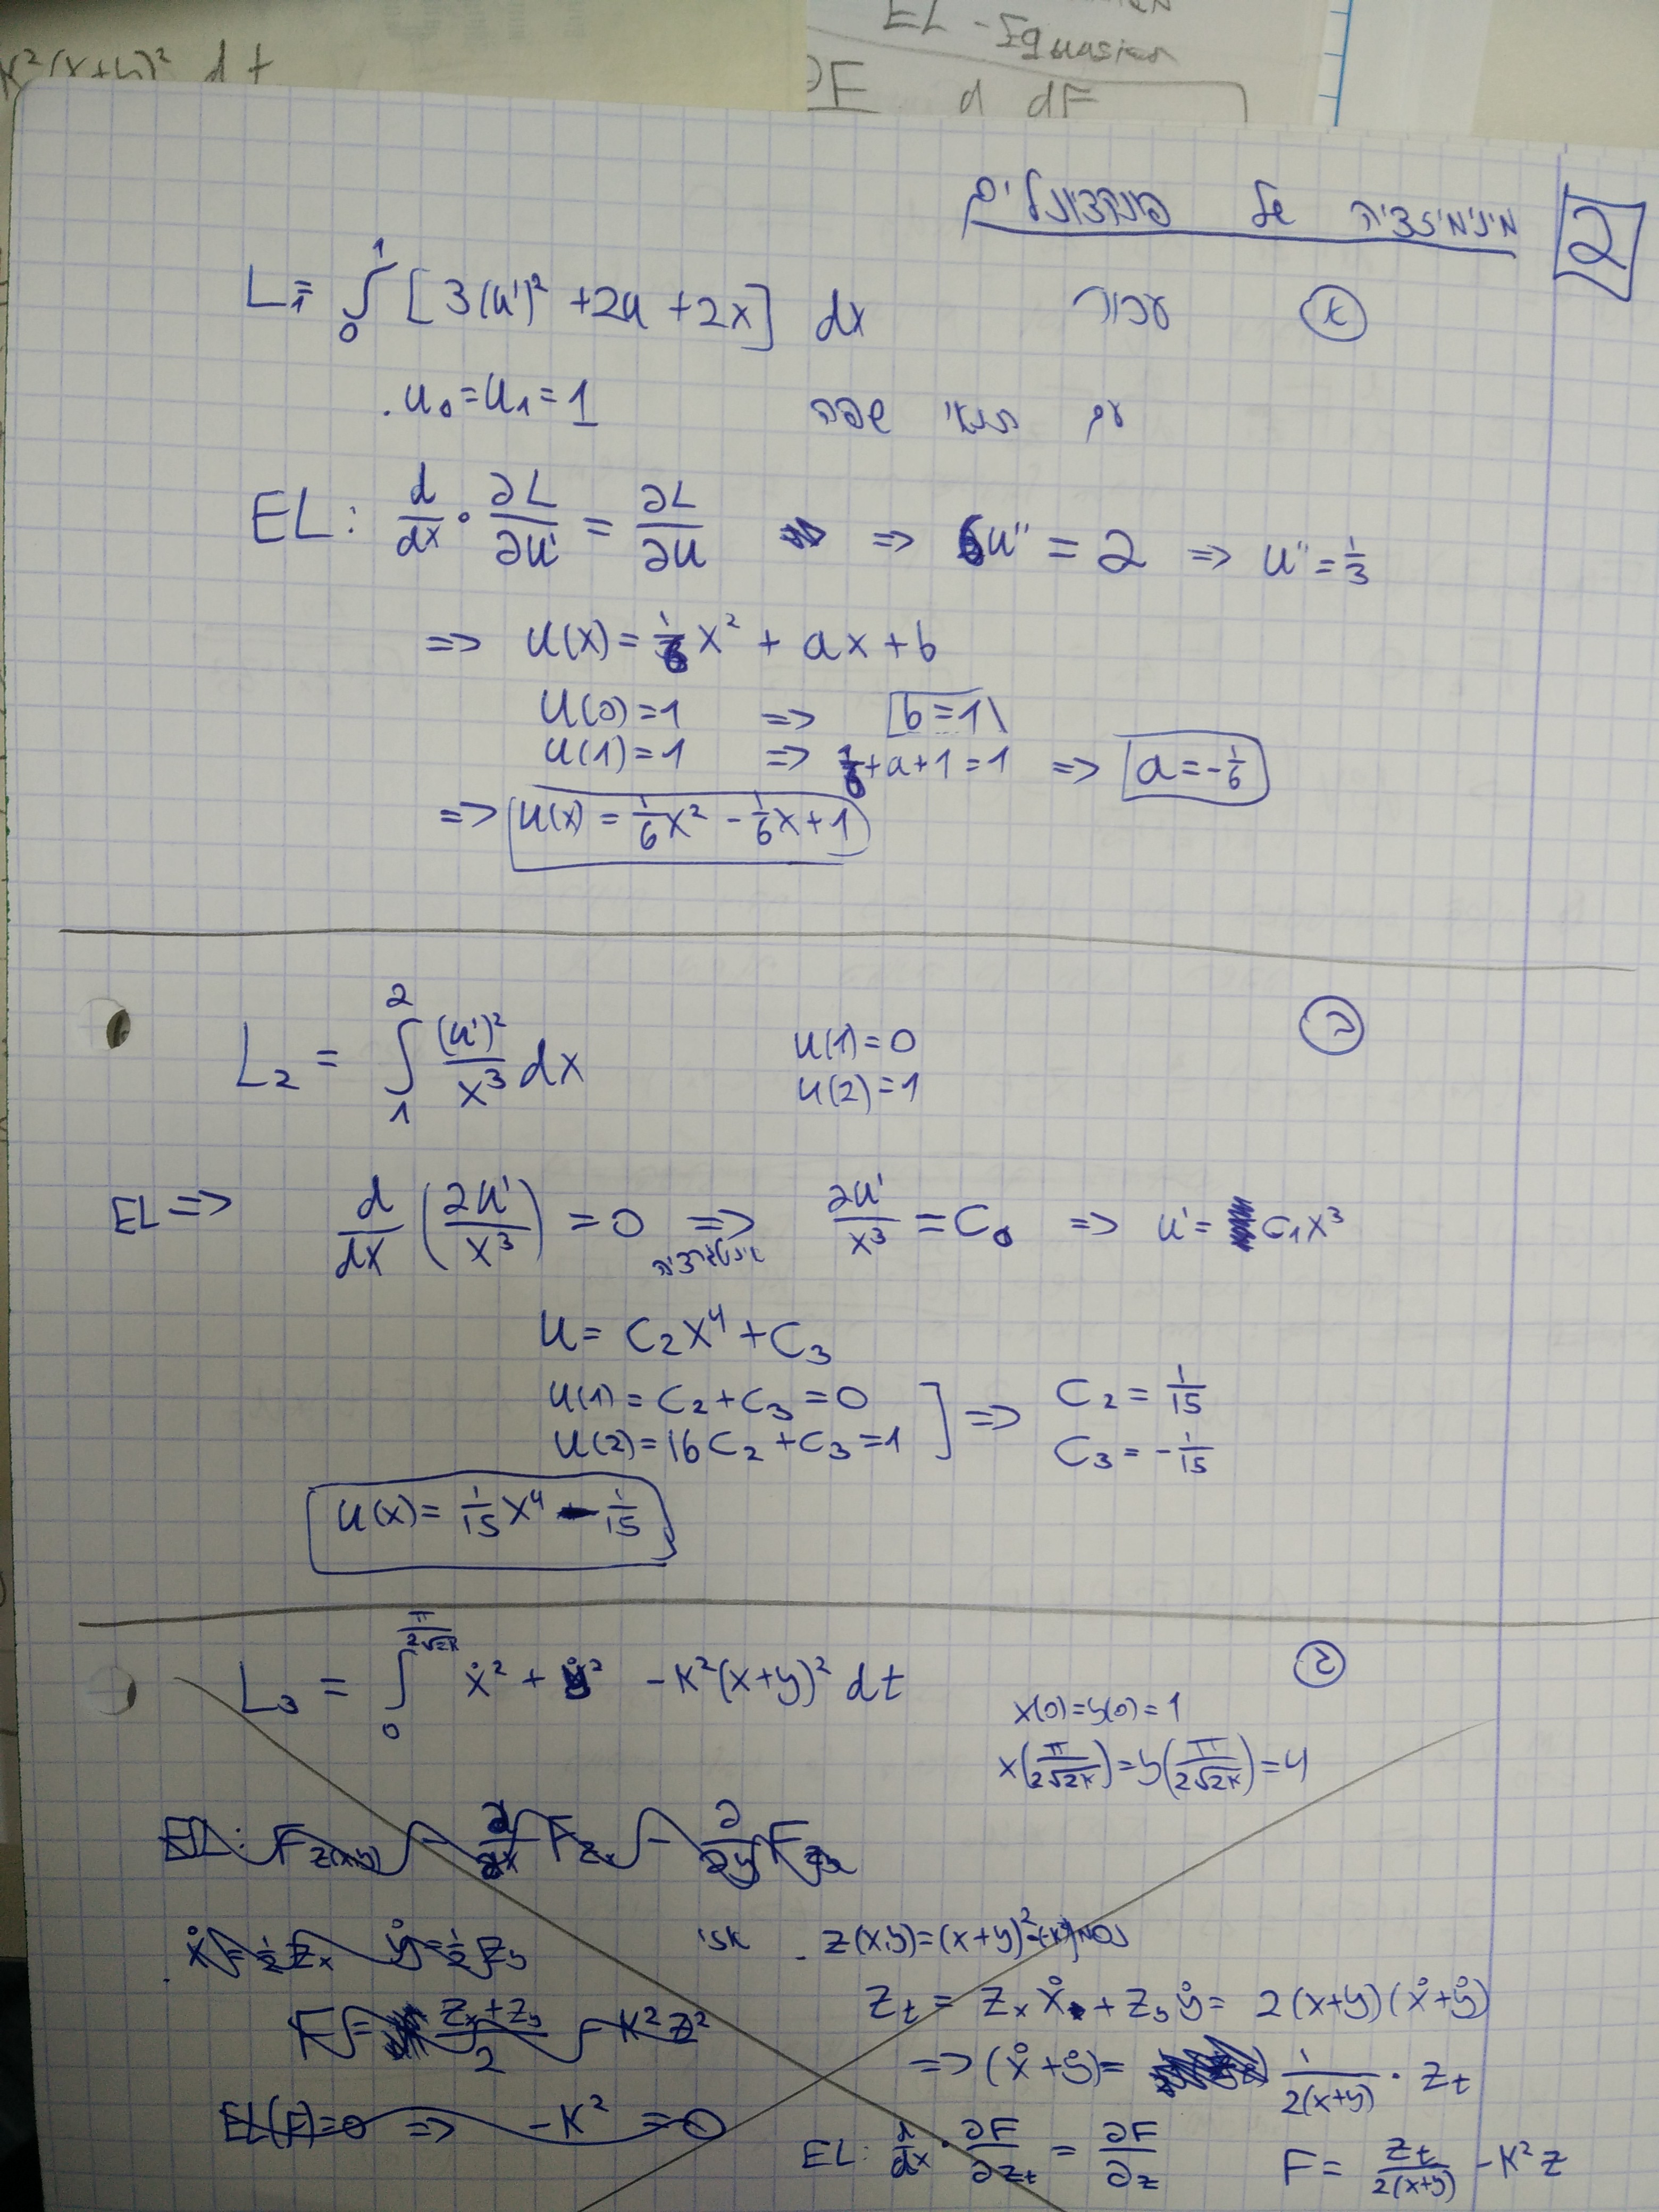 K²(x+y)² dt
EL - Equasion
∂F d dF
2 מינימיזציה של פונקציונלים
א עבור L₁ = ∫₀¹ [3(u')² + 2u + 2x] dx
עם תנאי שפה u₀ = u₁ = 1.
EL: d/dx · ∂L/∂u' = ∂L/∂u => 6u'' = 2 => u'' = 1/3
=> u(x) = 1/6 x² + ax + b
u(0) = 1 => b = 1
u(1) = 1 => 1/6 + a + 1 = 1 => a = -1/6
=> u(x) = 1/6 x² - 1/6 x + 1
ב
L₂ = ∫₁² (u')²/x³ dx u(1) = 0
u(2) = 1
EL => d/dx (2u'/x³) = 0 => אינטגרציה 2u'/x³ = C₀ => u' = C₁x³
u = C₂x⁴ + C₃
u(1) = C₂ + C₃ = 0 ] => C₂ = 1/15
u(2) = 16C₂ + C₃ = 1 C₃ = -1/15
u(x) = 1/15 x⁴ - 1/15
ג
L₃ = ∫₀^(π/2√2K) ẋ² + ẏ² - K²(x+y)² dt
x(0) = y(0) = 1
x(π/2√2K) = y(π/2√2K) = 4
EL: F_z(x,y) - ∂/∂x F_zx - ∂/∂y F_zy
ẋ = 1/2 Zx ẏ = 1/2 Zy
נסמן z(x,y) = (x+y)². אזי
F = (Zx + Zy)/2 - K²Z²
Zt = Zx ẋ + Zy ẏ = 2(x+y)(ẋ+ẏ)
=> (ẋ+ẏ) = 1/2(x+y) · Zt
EL(F) = 0 => -K² = 0
EL: d/dx · ∂F/∂Zt = ∂F/∂z F = Zt/2(x+y) - K²Z